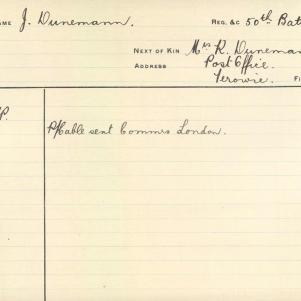 NAME J. Dunemann. REG. &C 50th Bat
NEXT OF KIN Mrs R. Dunema
ADDRESS Post Office.
Terowie. FI
P.
P/Cable sent Commrs London.